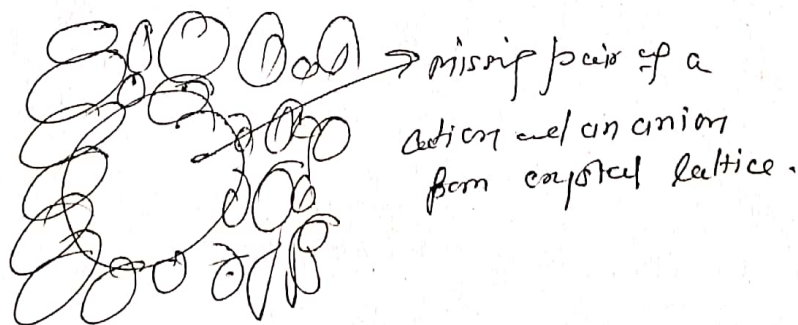 missing pair of a
cation and an anion
from crystal lattice.